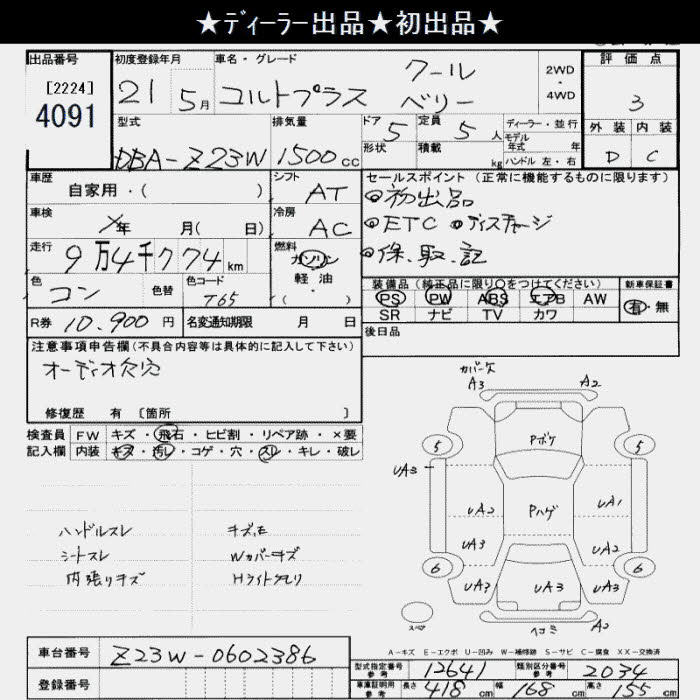 ★ディーラー出品★初出品★
出品番号
[2224]
4091
初度登録年月
21 5月
車名・グレード
コルトプラス
クール
ベリー
2WD
・
4WD
評価点
3
外装 内装
D C
型式
DBA-Z23W
排気量
1500cc
ドア 5
形状
定員 5人
積載 kg
ディーラー・並行
モデル
年式 年
ハンドル 左・右
車歴
自家用・( )
シフト
AT
車検
年 月( 日)
冷房
AC
走行
9万4千774km
燃料
ガソリン
軽油・
( )
色
コン
色替
色コード
T65
R券 10,900円
名変通知期限 月 日
セールスポイント(正常に機能するものに限ります)
◎初出品
◎ETC ◎ディスチャージ
◎保.取.記
装備品(純正品に限り○をつけてください)
PS PW ABS エアB AW
SR ナビ TV カワ
新車保証書
有・無
後日品
注意事項申告欄(不具合内容等は具体的に記入して下さい)
オーディオ欠穴
修復歴 有〔箇所 〕
検査員
記入欄
FW キズ・飛石・ヒビ割・リペア跡・×要
内装 キズ・汚レ・コゲ・穴・スレ・キレ・破レ
ハンドルスレ
シートスレ
内張りキズ
キズ.E
Wカバーキズ
Hライトクモリ
カバーケ
A3 A2
5 5
Pボケ
UA3
UA2 Pハゲ UA1
UA3 UA2
6 6
UA3 UA3 UA3
スペア
ヘコミ A2
A-キズ E-エクボ U-凹み W-補修跡 S-サビ C-腐食 XX-交換済
車台番号
Z23W-0602386
登録番号
型式指定番号
参考
12641
類別区分番号
参考
2034
車庫証明用
参考
長さ 418cm 幅 168cm 高さ 155cm